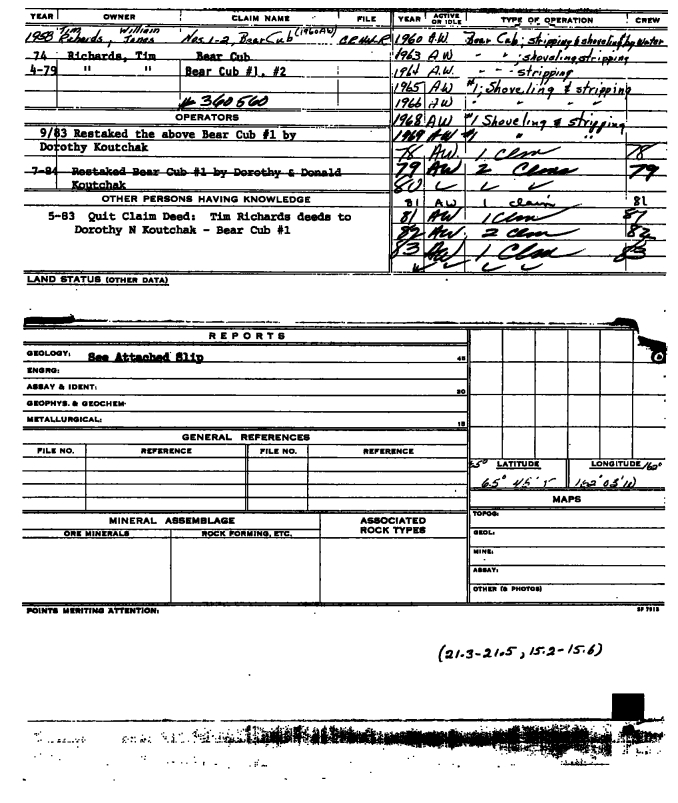 YEAR OWNER CLAIM NAME FILE YEAR ACTIVE OR IDLE TYPE OF OPERATION CREW
1958 Tim Richards, William Jones Nos. 1-2, Bear Cub (1960AW) 1960 A.W. Bear Cub; stripping & shoveling by water
74 Richards, Tim Bear Cub 1963 AW " " shoveling, stripping
4-79 " " Bear Cub #1, #2 1964 A.W. - - - stripping
1965 AW #1; Shoveling & stripping
# 360560 1966 AW " " "
OPERATORS 1968 AW #1 Shoveling & stripping
9/83 Restaked the above Bear Cub #1 by 1969 AW #1 " "
Dorothy Koutchak 78 AW 1 Clm 78
7-84 Restaked Bear Cub #1 by Dorothy & Donald 79 AW 2 Clms 79
Koutchak 80 ✓ ✓ ✓
OTHER PERSONS HAVING KNOWLEDGE 81 AW 1 claim 81
5-83 Quit Claim Deed: Tim Richards deeds to 81 AW 1 Clm 81
Dorothy N Koutchak - Bear Cub #1 82 AW 2 clm 82
83 AW 1 Clm 83
✓ ✓ ✓ ✓
LAND STATUS (OTHER DATA)
REPORTS
GEOLOGY: See Attached Slip 45
ENGRG:
ASSAY & IDENT: 30
GEOPHYS. & GEOCHEM.
METALLURGICAL: 15
GENERAL REFERENCES
FILE NO. REFERENCE FILE NO. REFERENCE
65° LATITUDE LONGITUDE 162°
65° 45' 162° 03' W
MAPS
MINERAL ASSEMBLAGE ASSOCIATED ROCK TYPES
ORE MINERALS ROCK FORMING, ETC.
TOPOG:
GEOL:
MINE:
ASSAY:
OTHER (& PHOTOS)
POINTS MERITING ATTENTION:
(21.3-21.5, 15.2-15.6)